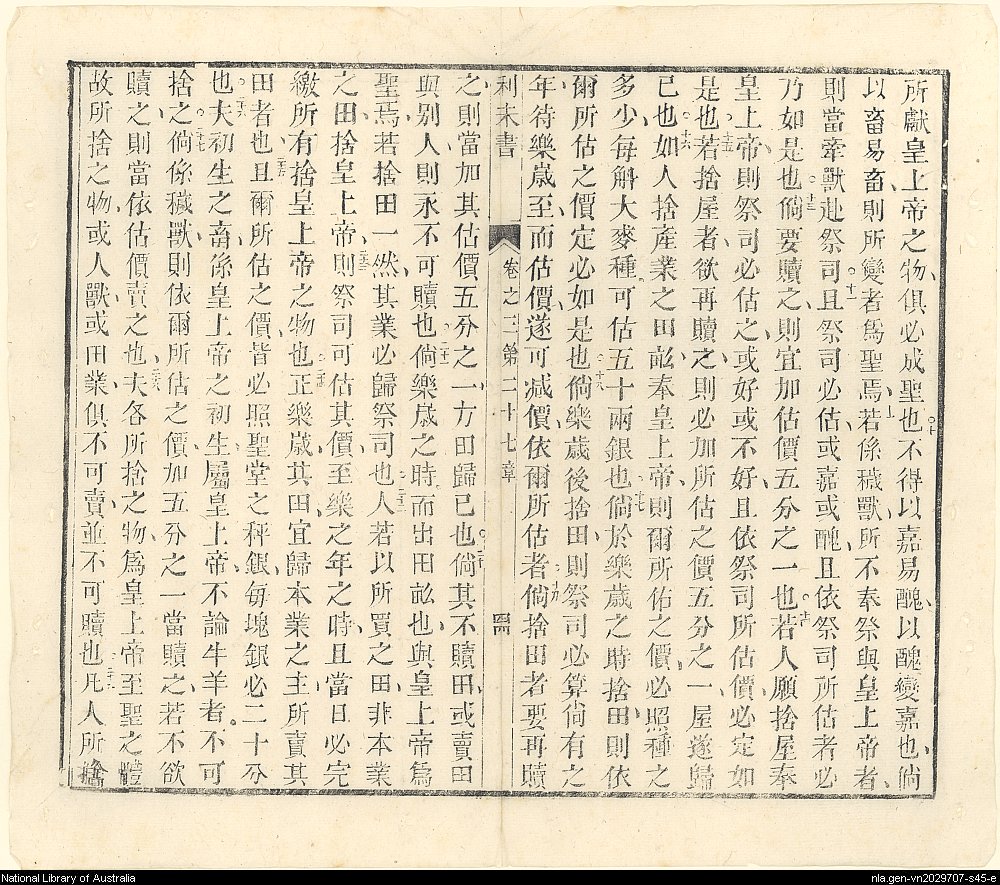 所獻皇上帝之物俱必成聖也不得以嘉易醜以醜變嘉也倘
以畜易畜則所變者為聖焉若係穢獸所不奉祭與皇上帝者
則當牽獸赴祭司且祭司必估或嘉或醜且依祭司所估者必
乃如是也倘要贖之則宜加估價五分之一也若人願捨屋奉
皇上帝則祭司必估之或好或不好且依祭司所估價必定如
是也若捨屋者欲再贖之則必加所估之價五分之一屋遂歸
已也如人捨產業之田訟奉皇上帝則爾所佑之價必照種之
多少每斛大麥種可估五十兩銀也倘於樂歲之時捨田則依
爾所估之價定必如是也倘樂歲後捨田則祭司必算倘有之
年待樂歲至而估價遂可減價依爾所估者倘捨田者要再贖
利未書 卷之三第二十七章
之則當加其估價五分之一方田歸已也倘其不贖田或賣田
與別人則永不可贖也倘樂歲之時而出田訟也與皇上帝為
聖焉若捨田一然其業必歸祭司也人若以所買之田非本業
之田捨皇上帝則祭司可估其價至樂之年之時且當日必完
繳所有捨皇上帝之物也正樂歲其田宜歸本業之主所賣其
田者也且爾所估之價皆必照聖堂之秤銀每塊銀必二十分
也夫初生之畜係皇上帝之初生屬皇上帝不論牛羊者不可
捨之倘係穢獸則依爾所估之價加五分之一當贖之若不欲
贖之則當依估價賣之也夫各所捨之物為皇上帝至聖之體
故所捨之物或人獸或田業俱不可賣並不可贖也凡人所捨
National Library of Australia
nla.gen-vn2029707-s45-e